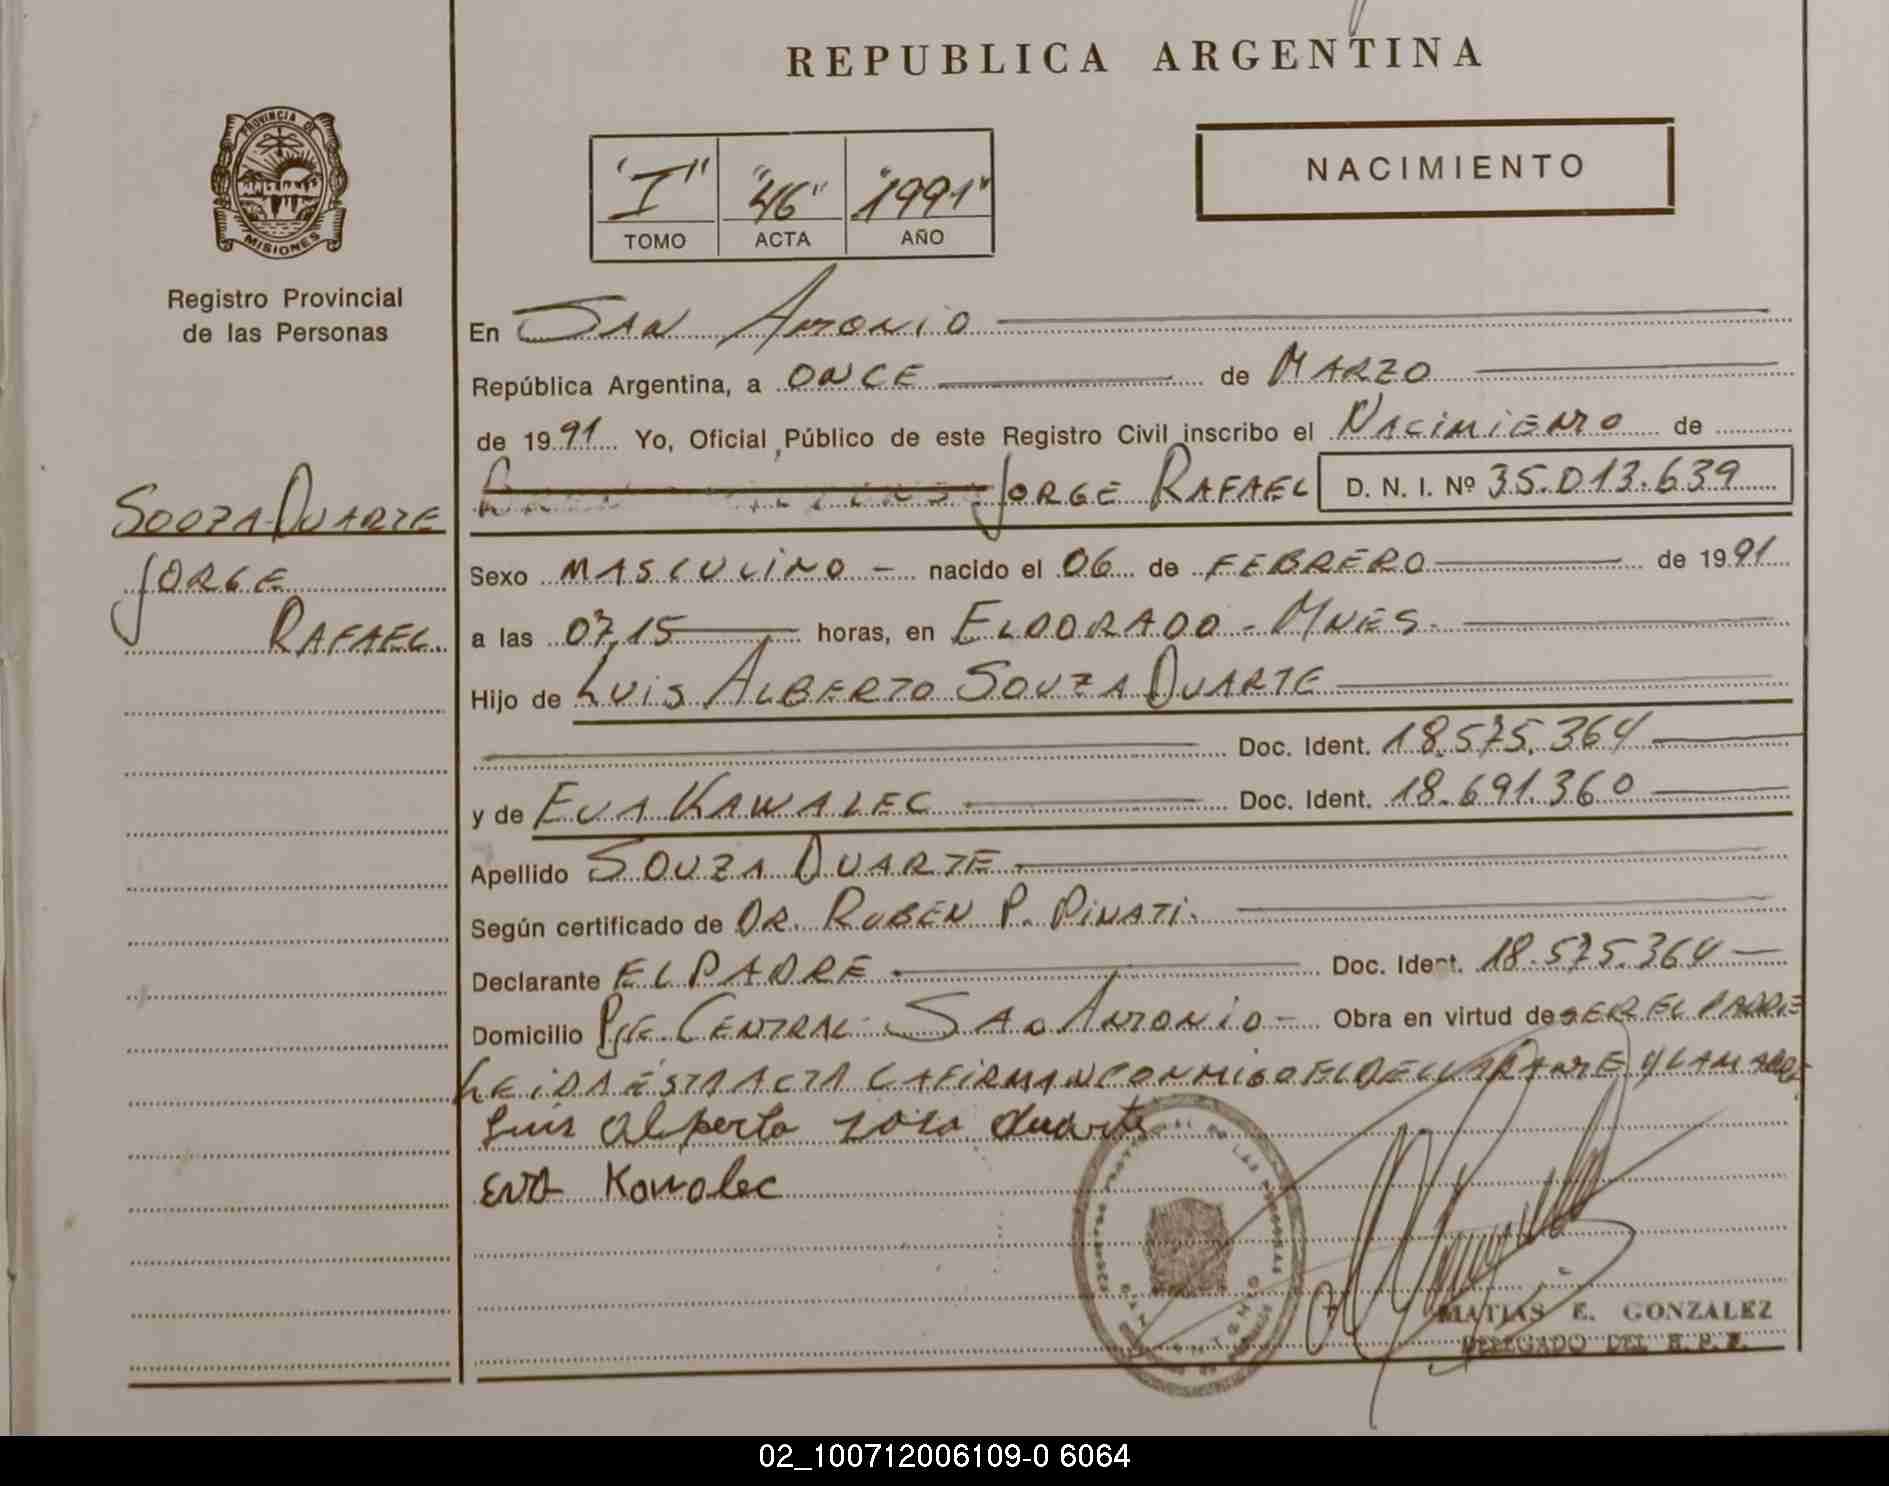 REPUBLICA ARGENTINA
PROVINCIA DE
MISIONES
Registro Provincial
de las Personas
"I" "46" "1991"
TOMO ACTA AÑO
NACIMIENTO
En SAN ANTONIO
República Argentina, a ONCE de MARZO
de 1991 Yo, Oficial Público de este Registro Civil inscribo el NACIMIENTO de
JORGE RAFAEL D. N. I. Nº 35.013.639
SOUZA DUARTE
JORGE
RAFAEL.
Sexo MASCULINO - nacido el 06 de FEBRERO de 1991
a las 07,15 horas, en ELDORADO - MNES.
Hijo de LUIS ALBERTO SOUZA DUARTE
Doc. Ident. 18.575.364
y de EVA KAWALEC Doc. Ident. 18.691.360
Apellido SOUZA DUARTE.
Según certificado de DR. RUBEN P. PINATI.
Declarante EL PADRE Doc. Ident. 18.575.364
Domicilio PJE. CENTRAL - SAN ANTONIO - Obra en virtud de SER EL PADRE
LEIDA ESTA ACTA LA FIRMAN CONMIGO EL DECLARANTE Y LA MADRE
Luis Alberto zoza duarte
EVA Kowolec
SAN ANTONIO
MATIAS E. GONZALEZ
DELEGADO DEL R. P. P.
02_100712006109-0 6064